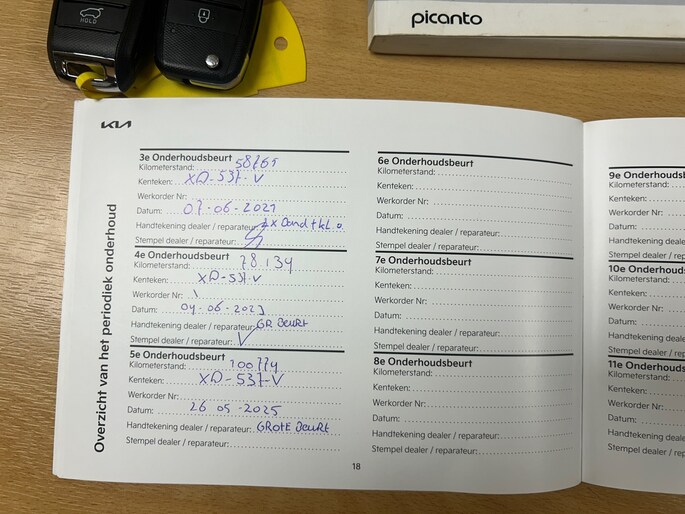 HOLD
picanto
KIA
Overzicht van het periodiek onderhoud
3e Onderhoudsbeurt
Kilometerstand: 58765
Kenteken: XD-537-V
Werkorder Nr:
Datum: 07-06-2021
Handtekening dealer / reparateur:
Stempel dealer / reparateur:
4e Onderhoudsbeurt
Kilometerstand: 78.134
Kenteken: XD-537-V
Werkorder Nr: \
Datum: 04-06-2023
Handtekening dealer / reparateur: GR BEURT
Stempel dealer / reparateur: V
5e Onderhoudsbeurt
Kilometerstand: 100774
Kenteken: XD-537-V
Werkorder Nr:
Datum: 26 05-2025
Handtekening dealer / reparateur: GROTE BEURT
Stempel dealer / reparateur:
6e Onderhoudsbeurt
Kilometerstand:
Kenteken:
Werkorder Nr:
Datum:
Handtekening dealer / reparateur:
Stempel dealer / reparateur:
7e Onderhoudsbeurt
Kilometerstand:
Kenteken:
Werkorder Nr:
Datum:
Handtekening dealer / reparateur:
Stempel dealer / reparateur:
8e Onderhoudsbeurt
Kilometerstand:
Kenteken:
Werkorder Nr:
Datum:
Handtekening dealer / reparateur:
Stempel dealer / reparateur:
18
9e Onderhoudsb
Kilometerstand:
Kenteken:
Werkorder Nr:
Datum:
Handtekening deal
Stempel dealer / rep
10e Onderhouds
Kilometerstand:
Kenteken:
Werkorder Nr:
Datum:
Handtekening deale
Stempel dealer / rep
11e Onderhouds
Kilometerstand:
Kenteken:
Werkorder Nr:
Datum:
Handtekening deale
Stempel dealer / repa